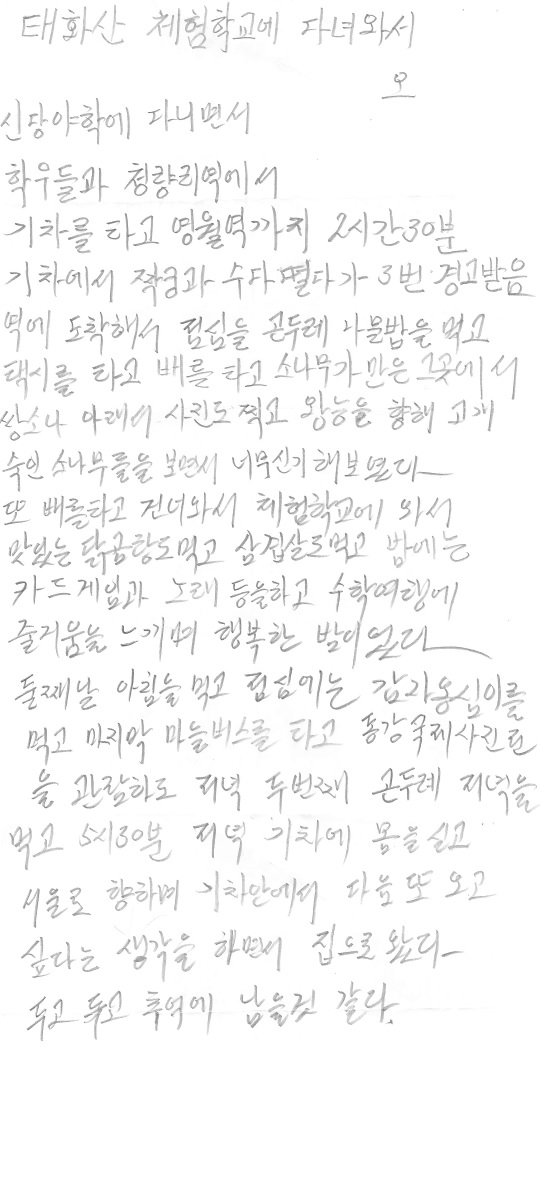 태화산 체험학교에 다녀와서
오
신당야학에 다니면서
학우들과 청량리역에서
기차를 타고 영월역까지 2시간30분
기차에서 짝궁과 수다 떨다가 3번 경고받음
역에 도착해서 점심을 곤두레 나물밥을 먹고
택시를 타고 배를 타고 소나무가 만은 그곳에서
쌍소나 아래서 사진도 찍고 왕능을 향해 고개
숙인 소나무를을 보면서 너무신기해보였다
또 배를타고 건너와서 체험학교에 와서
맛있는 닭곰탕도먹고 삼겹살도먹고 밤에는
카드게임과 노래 등을하고 수학여행에
즐거움을 느끼며 행복한 밤이었다
둘째날 아침을 먹고 점심에는 감자옹심이를
먹고 마지막 마늘버스를 타고 동강국제사진전
을 관람하도 저녁 두번째 곤두레 저녁을
먹고 5시30분 저녁 기차에 몸을 싣고
서울로 향하며 기차안에서 다음 또 오고
싶다는 생각을 하면서 집으로 왔다
두고 두고 추억에 남을것 같다.